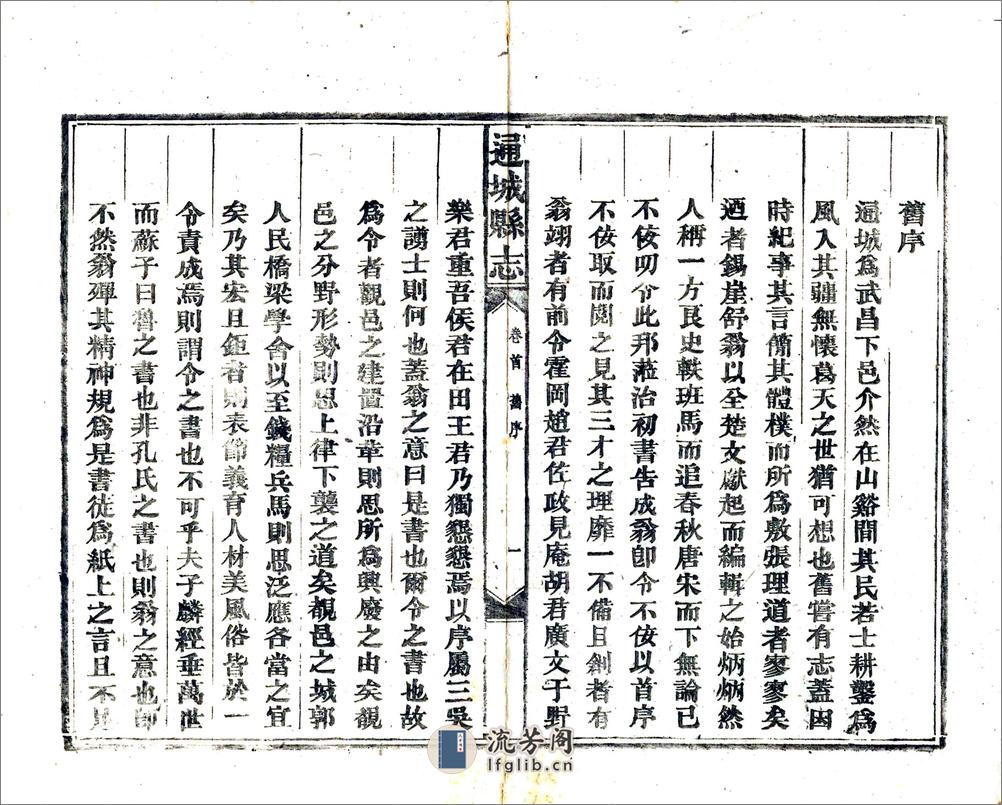 舊序
通城爲武昌下邑介然在山谿間其民若士耕鑿爲
風入其疆無懷葛天之世猶可想也舊嘗有志蓋因
時紀事其言簡其體樸而所爲敷張理道者寥寥矣
迺者錫崖舒翁以全楚文獻起而編輯之始炳炳然
人稱一方良史軼班馬而追春秋唐宋而下無論已
不佞叨令此邦蒞治初書告成翁卽令不佞以首序
不佞取而閱之見其三才之理靡一不備且創者有
翁翊者有前令霍岡趙君佐政見庵胡君廣文于野
通城縣志
卷首
舊序
一
樂君重吾侯君在田王君乃獨懇懇焉以序屬三吳
之謭士則何也蓋翁之意曰是書也爾令之書也故
爲令者觀邑之建置沿革則思所爲興廢之由矣觀
邑之分野形勢則思上律下襲之道矣觀邑之城郭
人民橋梁學舍以至錢糧兵馬則思泛應各當之宜
矣乃其宏且鉅者則表節義育人材美風俗皆於一
令責成焉則謂令之書也不可乎夫子麟經垂萬世
而蘇子曰魯之書也非孔氏之書也則翁之意也卽
不然翁殫其精神規爲是書徒爲紙上之言且不
流芳阁
lfglib.cn